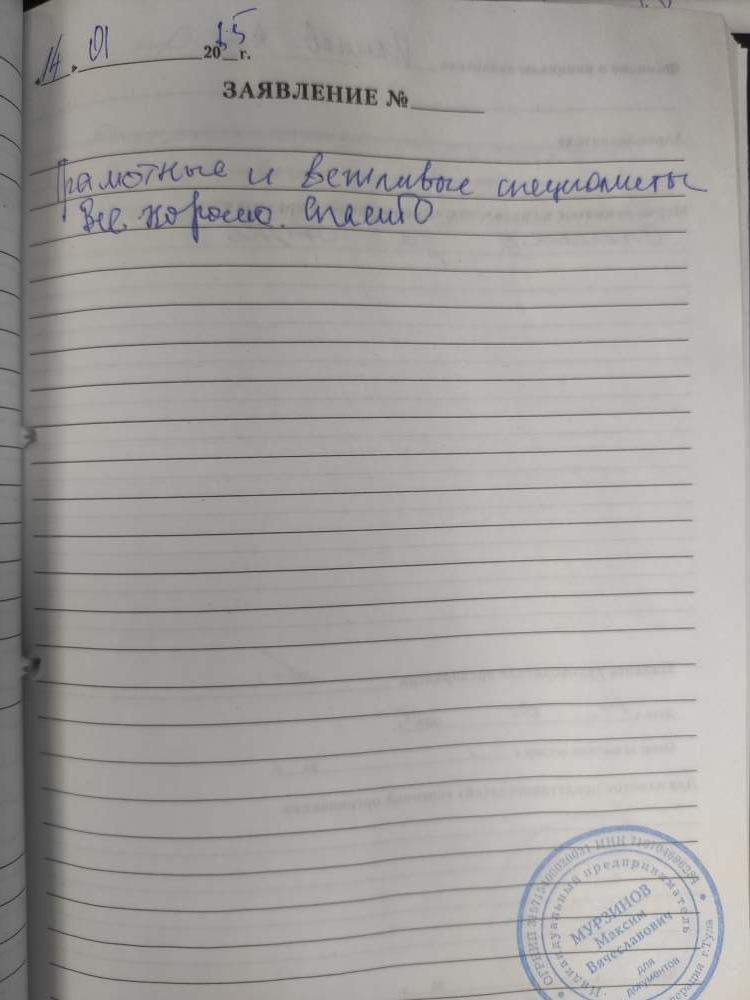 «14» 01 2025 г.
ЗАЯВЛЕНИЕ №
Грамотные и вежливые специалисты
Все хорошо. Спасибо
Индивидуальный предприниматель
МУРЗИНОВ
Максим
Вячеславович
для
документов
г.Тула